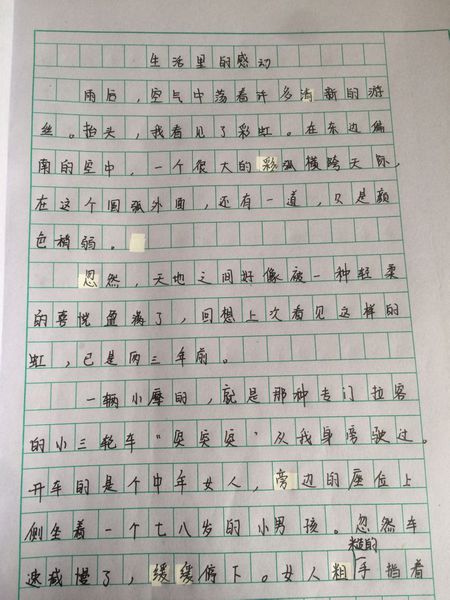 生活里的感动
雨后，空气中荡着许多清新的游
丝。抬头，我看见了彩虹。在东边偏
南的空中，一个很大的彩弧横跨天际，
在这个圆弧外面，还有一道，只是颜
色稍弱。
忽然，天地之间好像被一种轻柔
的喜悦盈满了，回想上次看见这样的
虹，已是两三年前。
一辆小摩的，就是那种专门拉客
的小三轮车“突突突”从我身旁驶过。
开车的是个中年女人，旁边的座位上
侧坐着一个七八岁的小男孩。忽然车
速减慢了，缓缓停下。女人粗糙的手指着